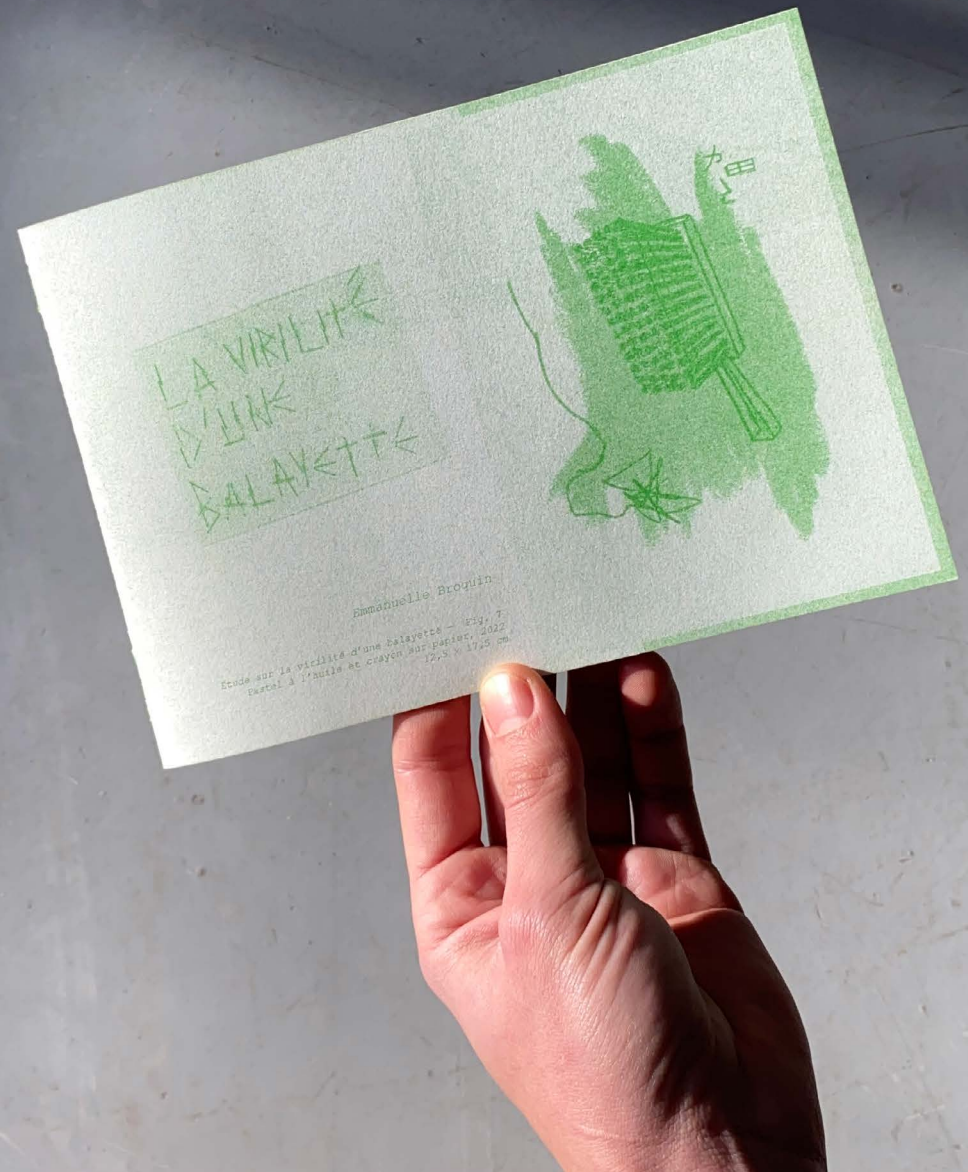 LA VIRILITÉ
D'UNE
BALAYETTE
Emmanuelle Broquin
Étude sur la virilité d'une balayette — Fig. 7
Pastel à l'huile et crayon sur papier, 2022
12,5 x 17,5 cm